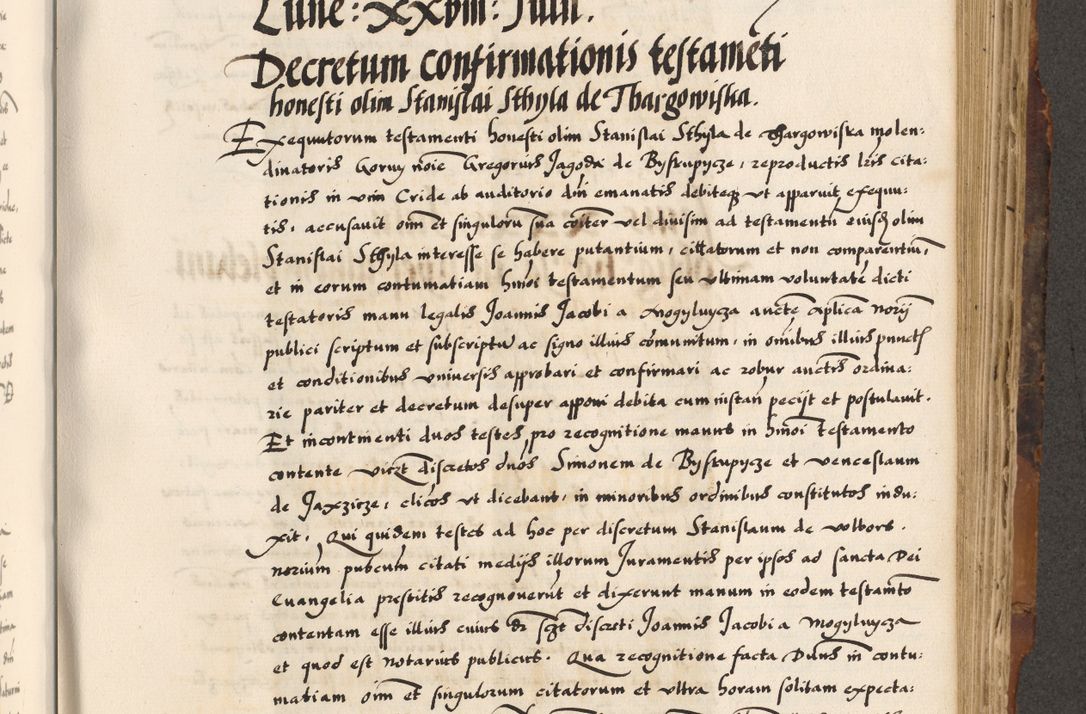 Lune : XXviii : Julii.
Decretum confirmationis testamēti
honesti olim Stanislai Sthyla de Thargowiska.
Exequutorum testamenti honesti olim Stanislai Sthyla de Thargowiska molen:
dinatoris Goruy noīe Gregorius Jagoda de Byskupycze, reproductis lr̄is cita:
tionis in vim Cride ab auditorio dn̄i emanatis debiteq̨ ut apparuit exequu:
tis, accusavit oīm et singuloru sua cōiter vel divisim ad testamentū eiusd olim
Stanislai Sthyla interesse se habere putantium, citatorum et non comparentiū,
et in eorum contumatiam hm̄oi testamentum seu ultimam voluntatē dicti
testatoris manu legalis Joannis Jacobi a Mogyluycza auctē aplica norij
publici scriptum et subscriptū ac signo illius cōmunitum, in om̄ibus illius punctis
et conditionibus universis approbari et confirmari ac robur auctis ordina:
rie pariter et decretum desuper apponi debita cum instan pecijt et postulavit.
Et incontinenti duos testes pro recognitione manus in hm̄oi testamento
contente vicꝫt discretos duos Simonem de Byskupycze et venceslaum
de Jaxzicze, clicos ut dicebant, in minoribus ordinibus constitutos indu:
xit. Qui quidem testes ad hoc per discretum Stanislaum de wolbors.
norium pubcum citati medijs illorum Juramentis per ipsos ad sancta Dei
Euangelia prestitis recognoverūt et dixerunt manum in eodem testam̄to
contentam esse illius cuius dr̄ scꝫt discreti Joannis Jacobi a Mogyluycza
et quod est notarius publicus. Qua recognitione facta Dn̄us in contu:
matiam oīm et singulorum citatorum et ultra horam solitam expecta: